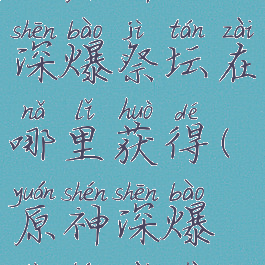 shēn bào jì tán zài
深爆祭坛在
nǎ lǐ huò dé
哪里获得(
yuán shén shēn bào
原神深爆